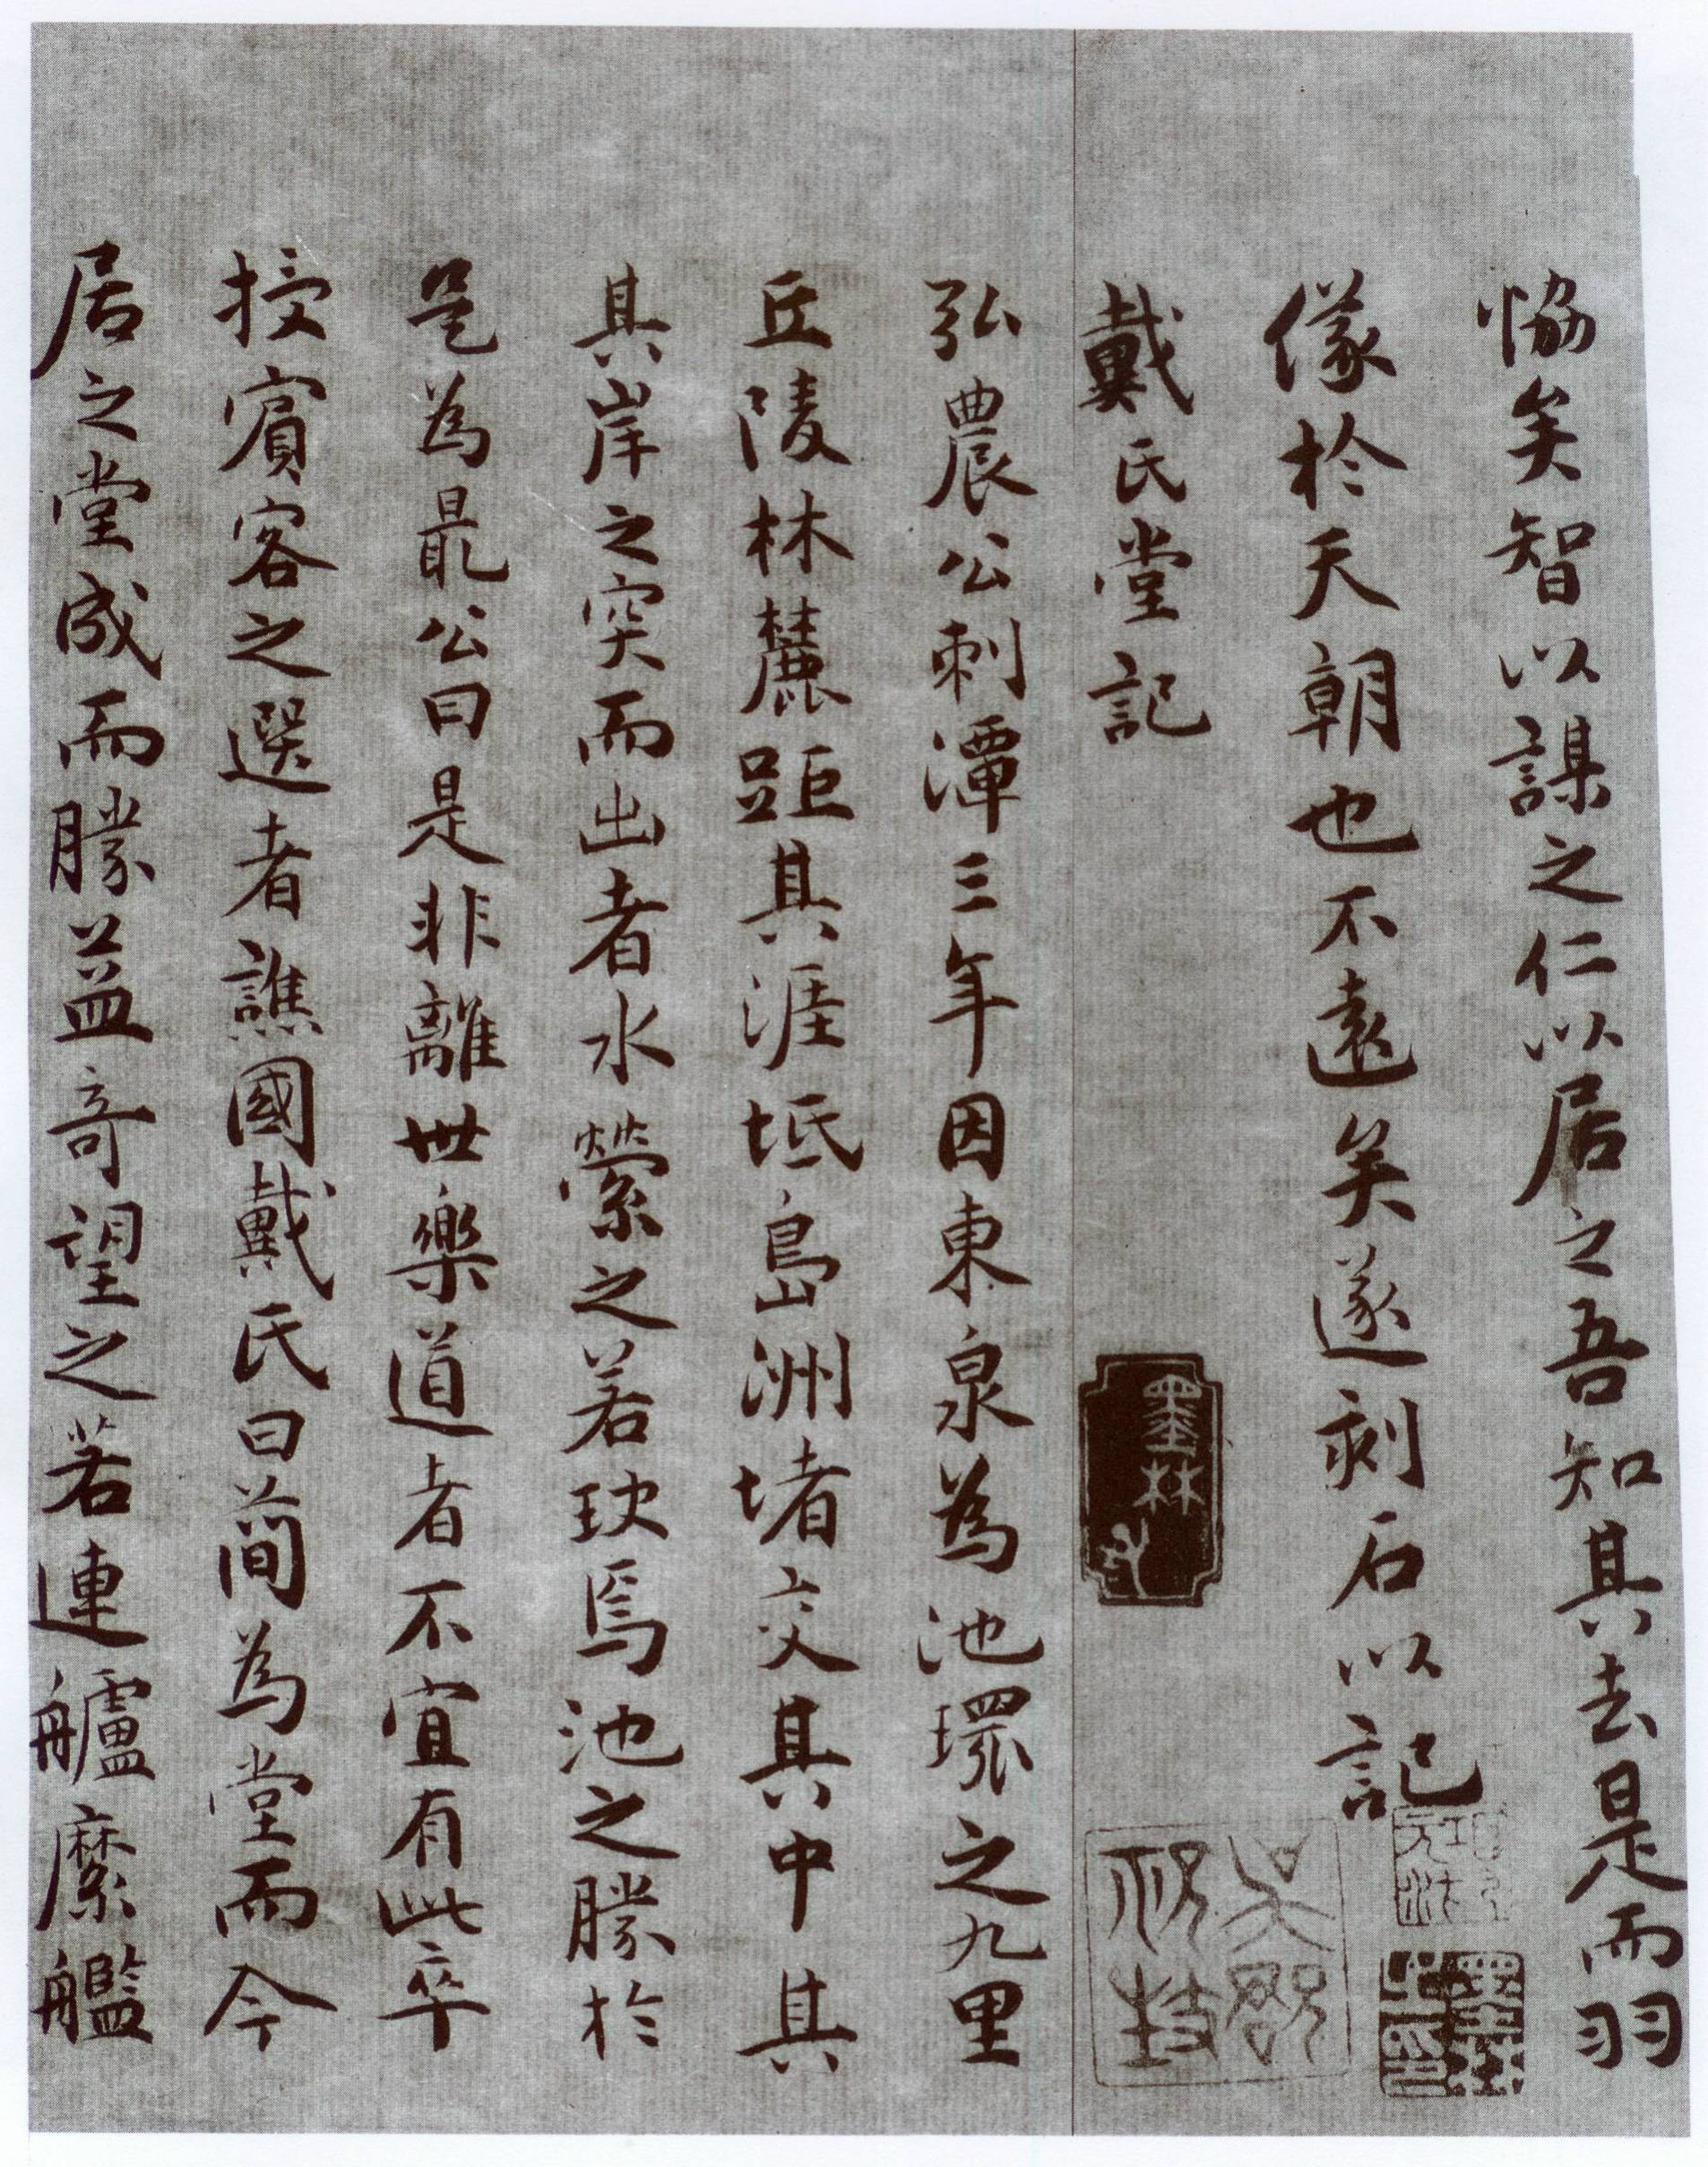 恊矣智以謀之仁以居之吾知其去是而羽
儀於天朝也不遠矣遂刻石以記
戴氏堂記
弘農公刺潭三年因東泉為池環之九里
丘陵林麓距其涯坻島洲堵交其中其
其岸之突而出者水縈之若玦焉池之勝於
是為最公曰是非離世樂道者不宜有此卒
授賓客之選者譙國戴氏曰簡為堂而今
居之堂成而勝益奇望之若連艫縻艦
墨林